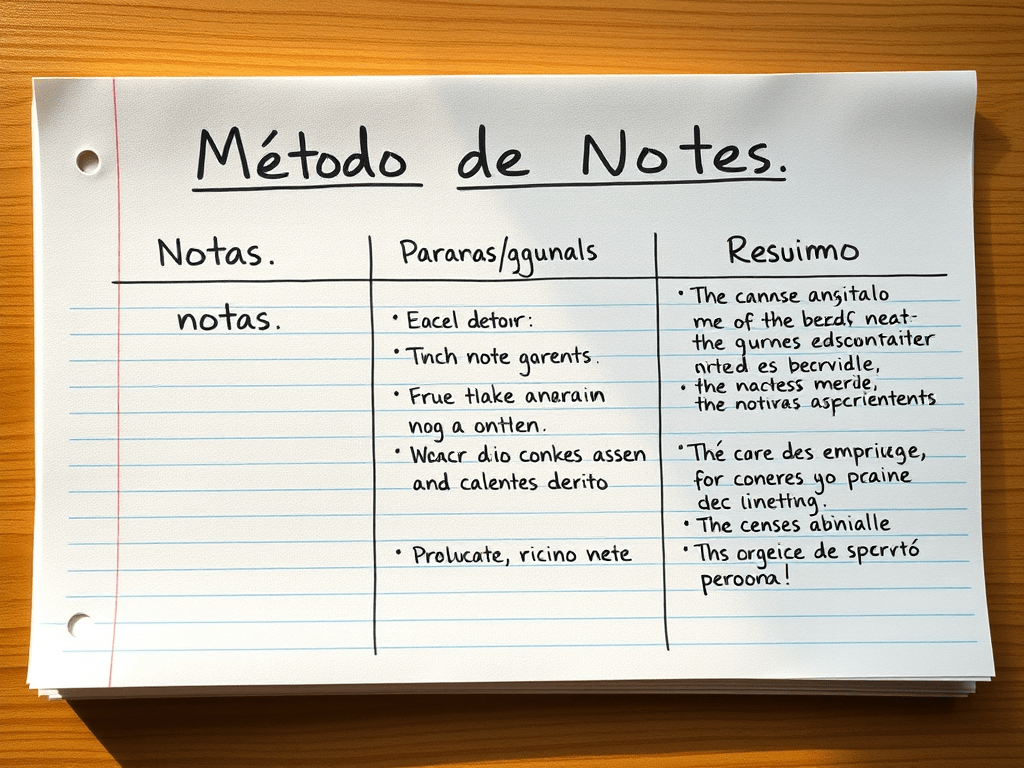 Método de Notes.
Notas.
Pararras/ggunals
Resuimo
notas.
• Eacel detoır:
• Tınch note garents.
• Frue tlake anarain
nog a ontten.
• Wcacr dio conkes assen
and calentes derito
• Prolucate, ricino nete
• The cannse angitalo
me of the berdf neat-
the gurnes edscontaiter
nrted es becrvidle,
• the nactess merde,
the notivas aspcrientents
• Thé care des empriuge,
for coneres yo praine
dec linettng.
• The censes abinialle
• Ths orgeice de spcrvtó
peroona!